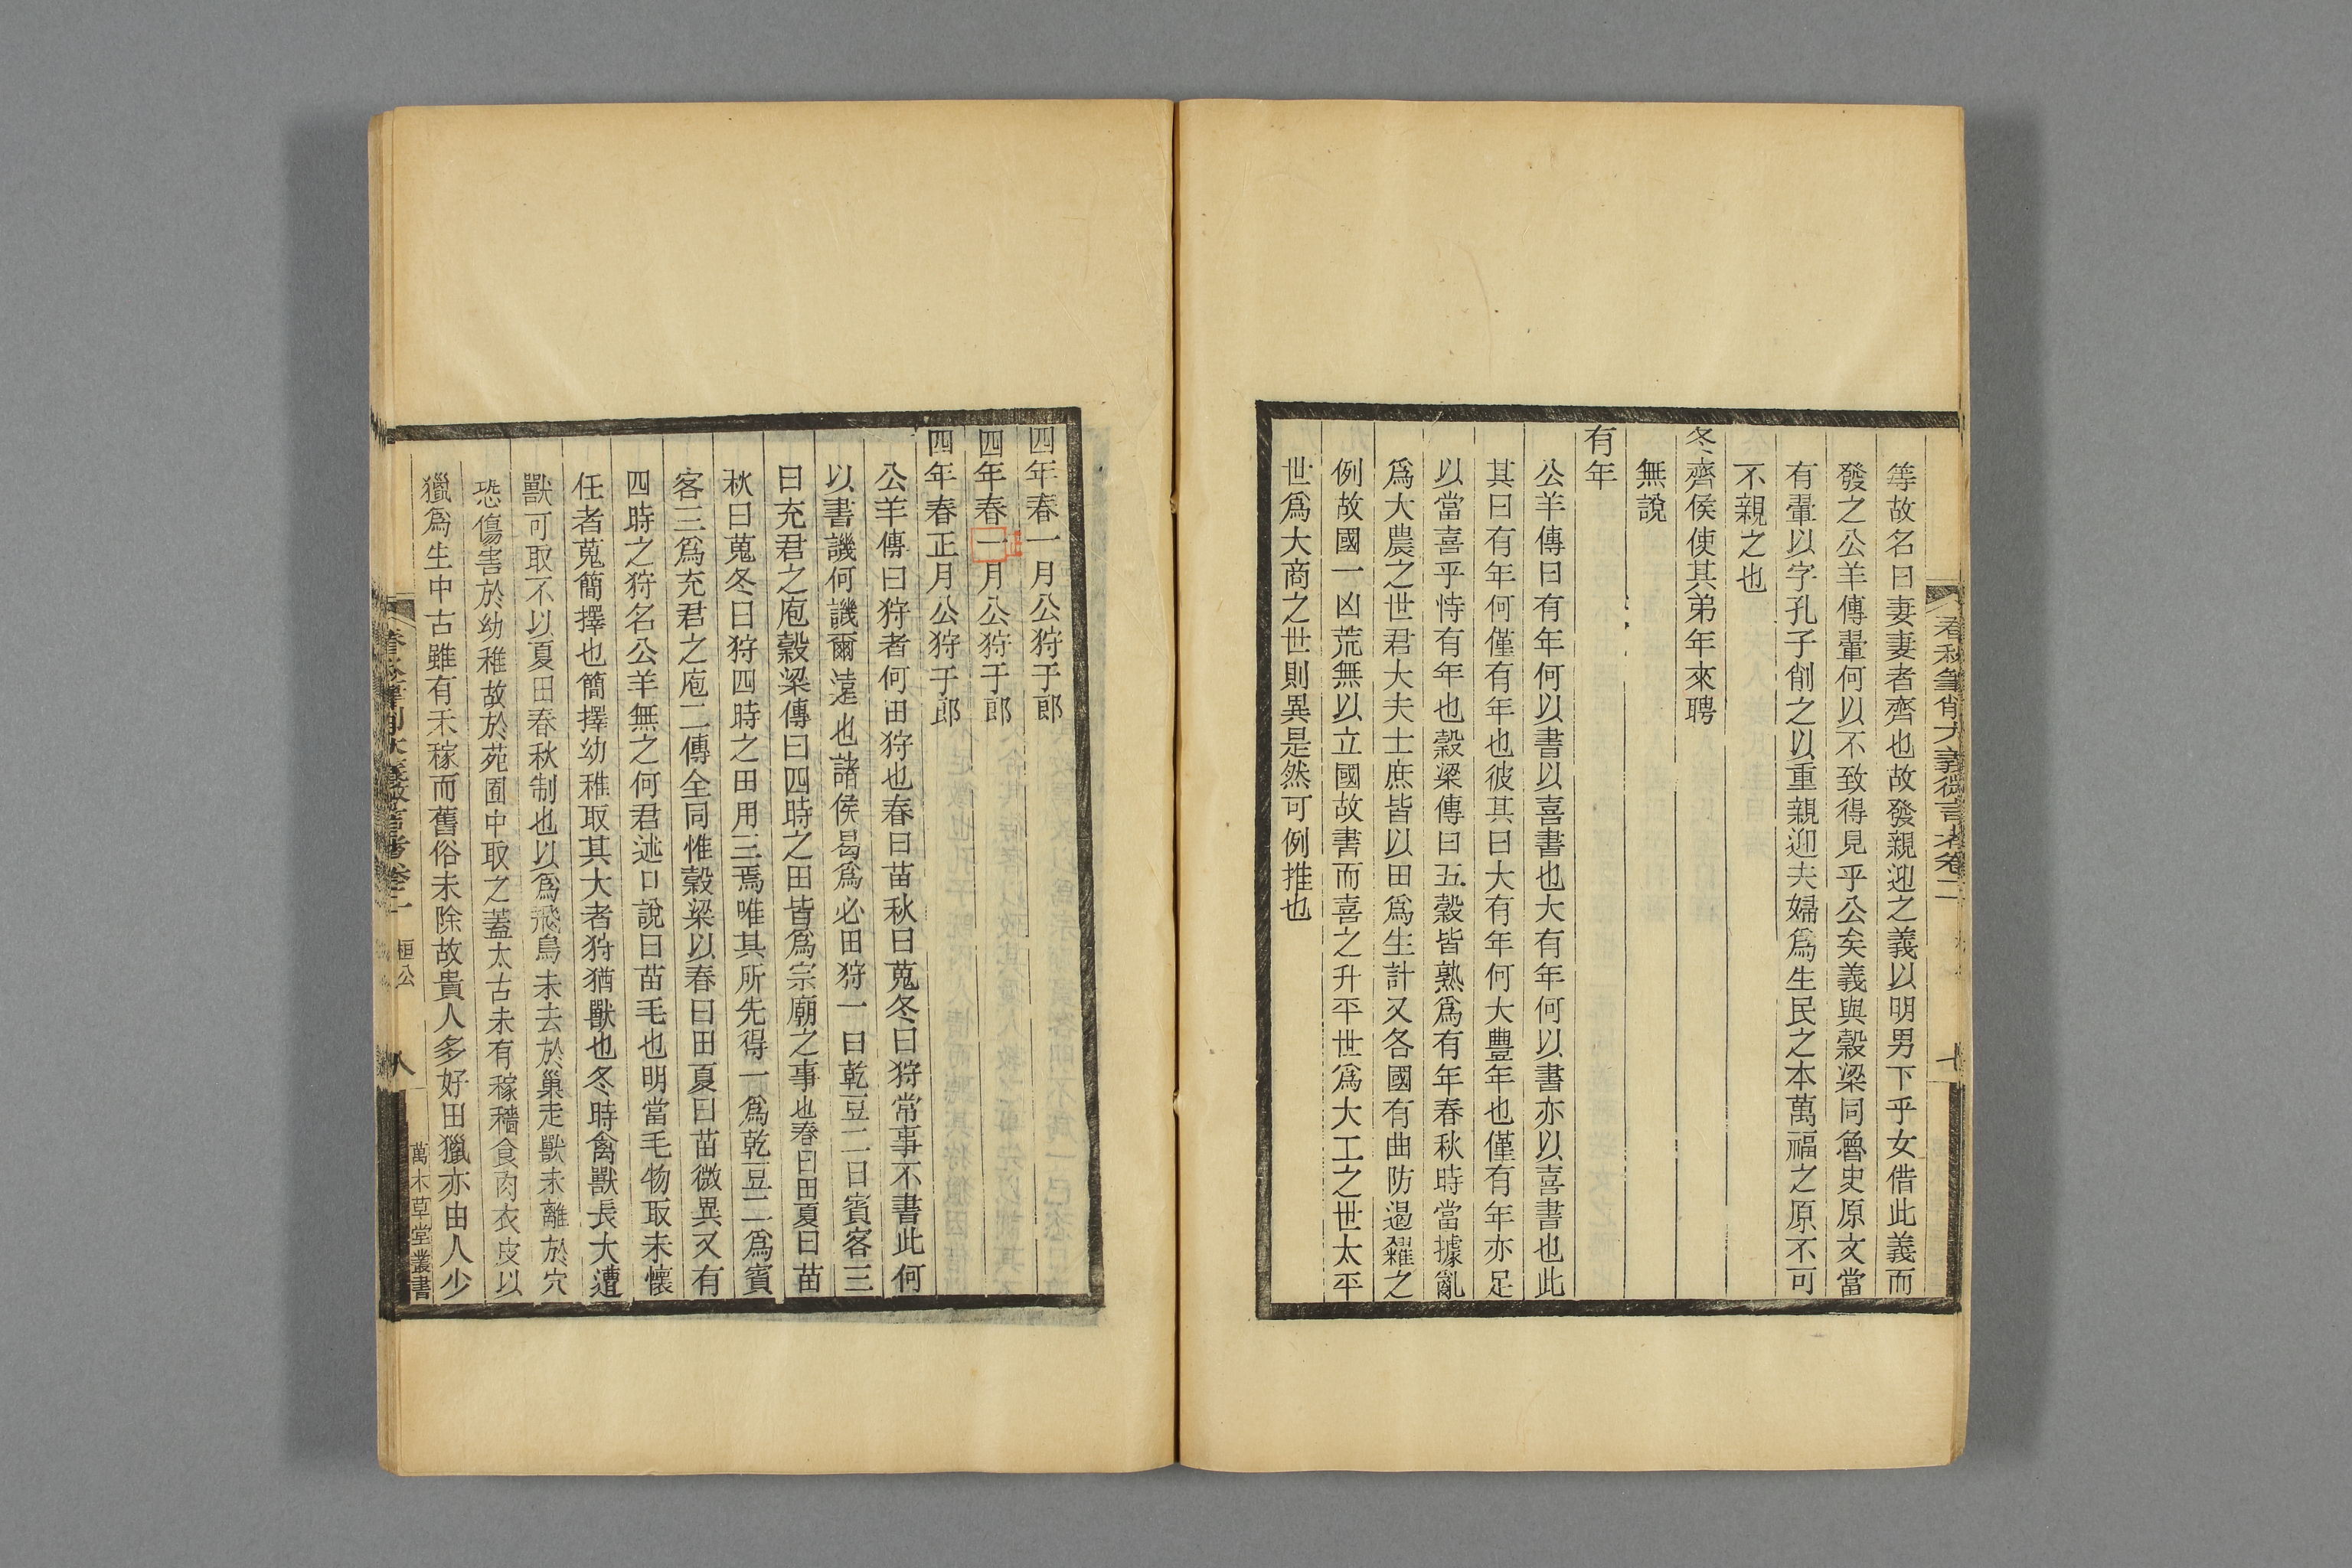 春秋筆削大義微言考卷二
等故名曰妻妻者齊也故發親迎之義以明男下乎女借此義而
發之公羊傳翬何以不致得見乎公矣義與穀梁同魯史原文當
有翬以字孔子削之以重親迎夫婦爲生民之本萬福之原不可
不親之也
冬齊侯使其弟年來聘
無說
有年
公羊傳曰有年何以書以喜書也大有年何以書亦以喜書也此
其曰有年何僅有年也彼其曰大有年何大豐年也僅有年亦足
以當喜乎恃有年也穀梁傳曰五穀皆熟爲有年春秋時當據亂
爲大農之世君大夫士庶皆以田爲生計又各國有曲防遏糴之
例故國一凶荒無以立國故書而喜之升平世爲大工之世太平
世爲大商之世則異是然可例推也
四年春一月公狩于郎
四年春一月公狩于郎
正
四年春正月公狩于郎
公羊傳曰狩者何田狩也春曰苗秋曰蒐冬曰狩常事不書此何
以書譏何譏爾遠也諸侯曷爲必田狩一曰乾豆二曰賓客三
曰充君之庖穀梁傳曰四時之田皆爲宗廟之事也春曰田夏曰苗
秋曰蒐冬曰狩四時之田用三焉唯其所先得一爲乾豆二爲賓
客三爲充君之庖二傳全同惟穀梁以春曰田夏曰苗微異又有
四時之狩名公羊無之何君述口說曰苗毛也明當毛物取未懷
任者蒐簡擇也簡擇幼稚取其大者狩猶獸也冬時禽獸長大遭
獸可取不以夏田春秋制也以爲飛鳥未去於巢走獸未離於穴
恐傷害於幼稚故於苑囿中取之蓋太古未有稼穡食肉衣皮以
獵爲生中古雖有禾稼而舊俗未除故貴人多好田獵亦由人少
春秋筆削大義微言考卷二
桓公
八
萬木草堂叢書